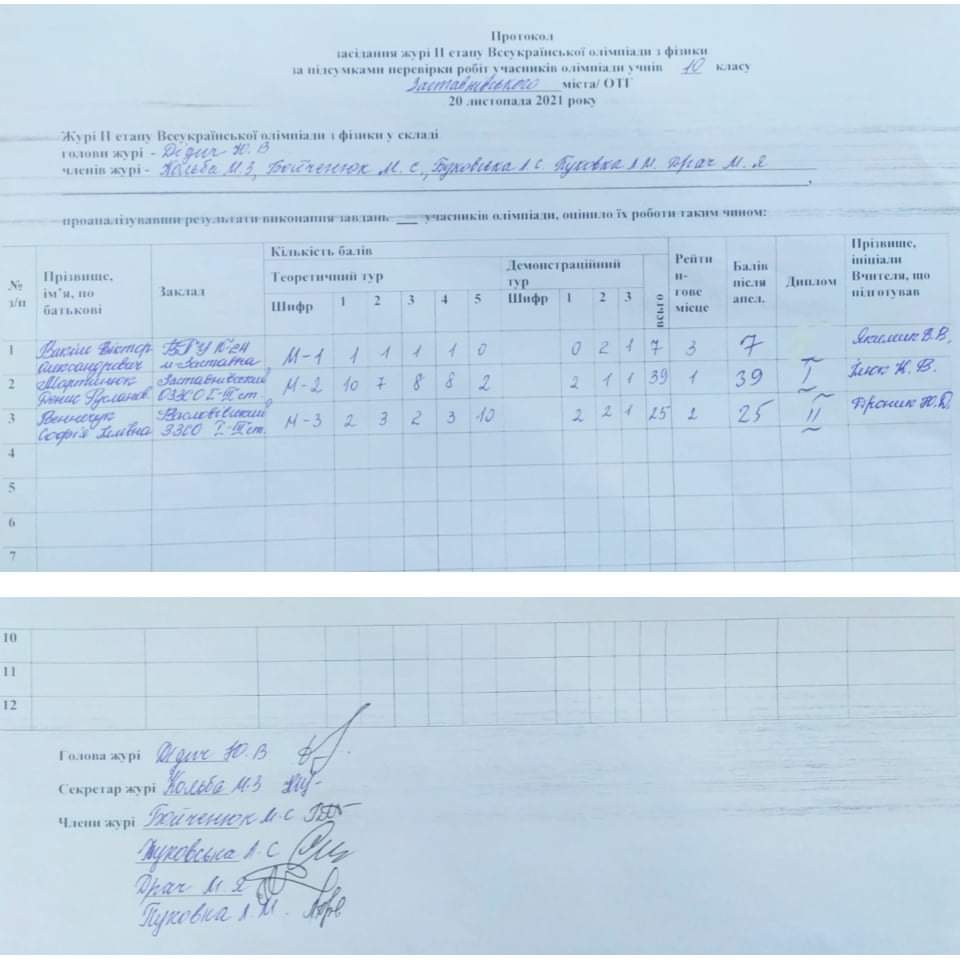 Протокол
засідання журі ІІ етапу Всеукраїнської олімпіади з фізики
за підсумками перевірки робіт учасників олімпіади учнів 10 класу
Заставнівського міста/ ОТГ
20 листопада 2021 року
Журі ІІ етапу Всеукраїнської олімпіади з фізики у складі
голови журі - Дідич Ю. В
членів журі - Кольба М.З, Бойченюк М. С., Буковська Л С. Пуковка Л М. Драч М. Я
проаналізувавши результати виконання завдань ___ учасників олімпіади, оцінило їх роботи таким чином:
№ з/п Прізвище, ім’я, по батькові Заклад Кількість балів Рейтин-гове місце Балів після апел. Диплом Прізвище, ініціали Вчителя, що підготував
Теоретичний тур Демонстраційний тур всього
Шифр 1 2 3 4 5 Шифр 1 2 3
1 Віктор м. Заставна М-1 1 1 1 1 0 0 2 1 7 3 7 В.В.
2 Мартинюк Денис Руслан. Заставнівський ОЗЗСО І-ІІІ ст. М-2 10 7 8 8 2 2 1 1 39 1 39 І К. В.
3 Софія ЗЗСО І-ІІІ ст. М-3 2 3 2 3 10 2 2 1 25 2 25 ІІ
4
5
6
7
10
11
12
Голова журі Дідич Ю. В
Секретар журі Кольба М.З
Члени журі Бойченюк М.С
Л. С
Драч М. Я
Пуковка Л. М.